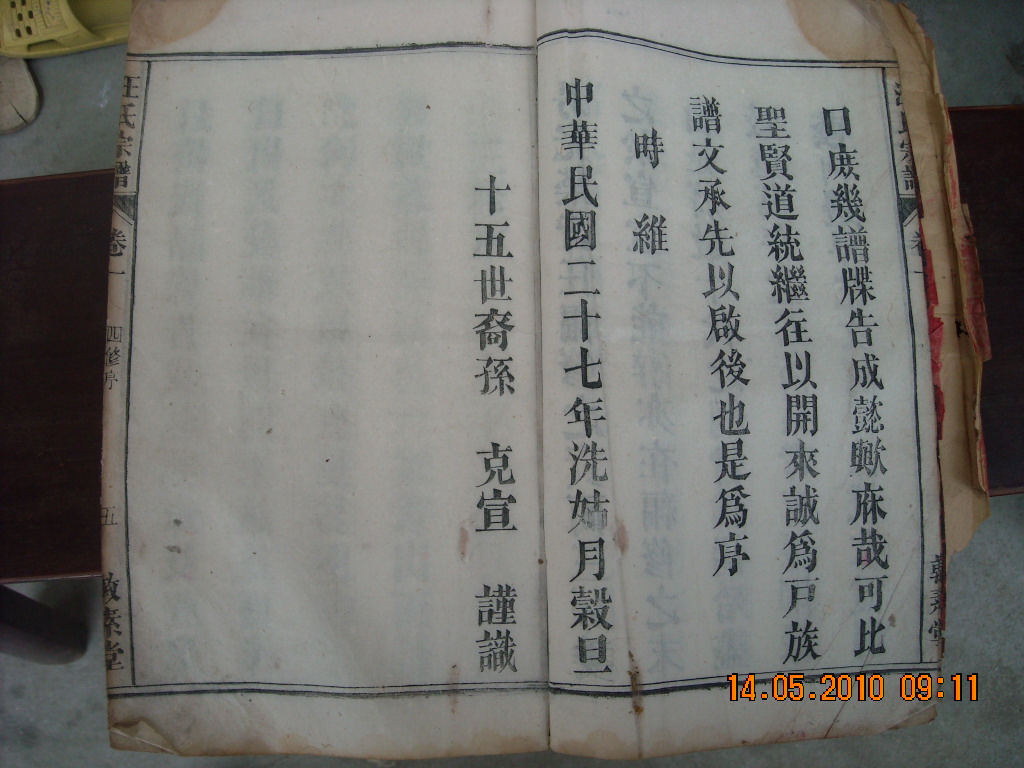 口庶幾譜牒告成懿歟庥哉可比
聖賢道統繼往以開來誠為戸族
譜文承先以啟後也是為序
時維
中華民國二十七年洗姑月穀旦
十五世裔孫 克宣 謹識
汪氏宗譜 卷一 四修序 五 敦素堂
14.05.2010 09:11